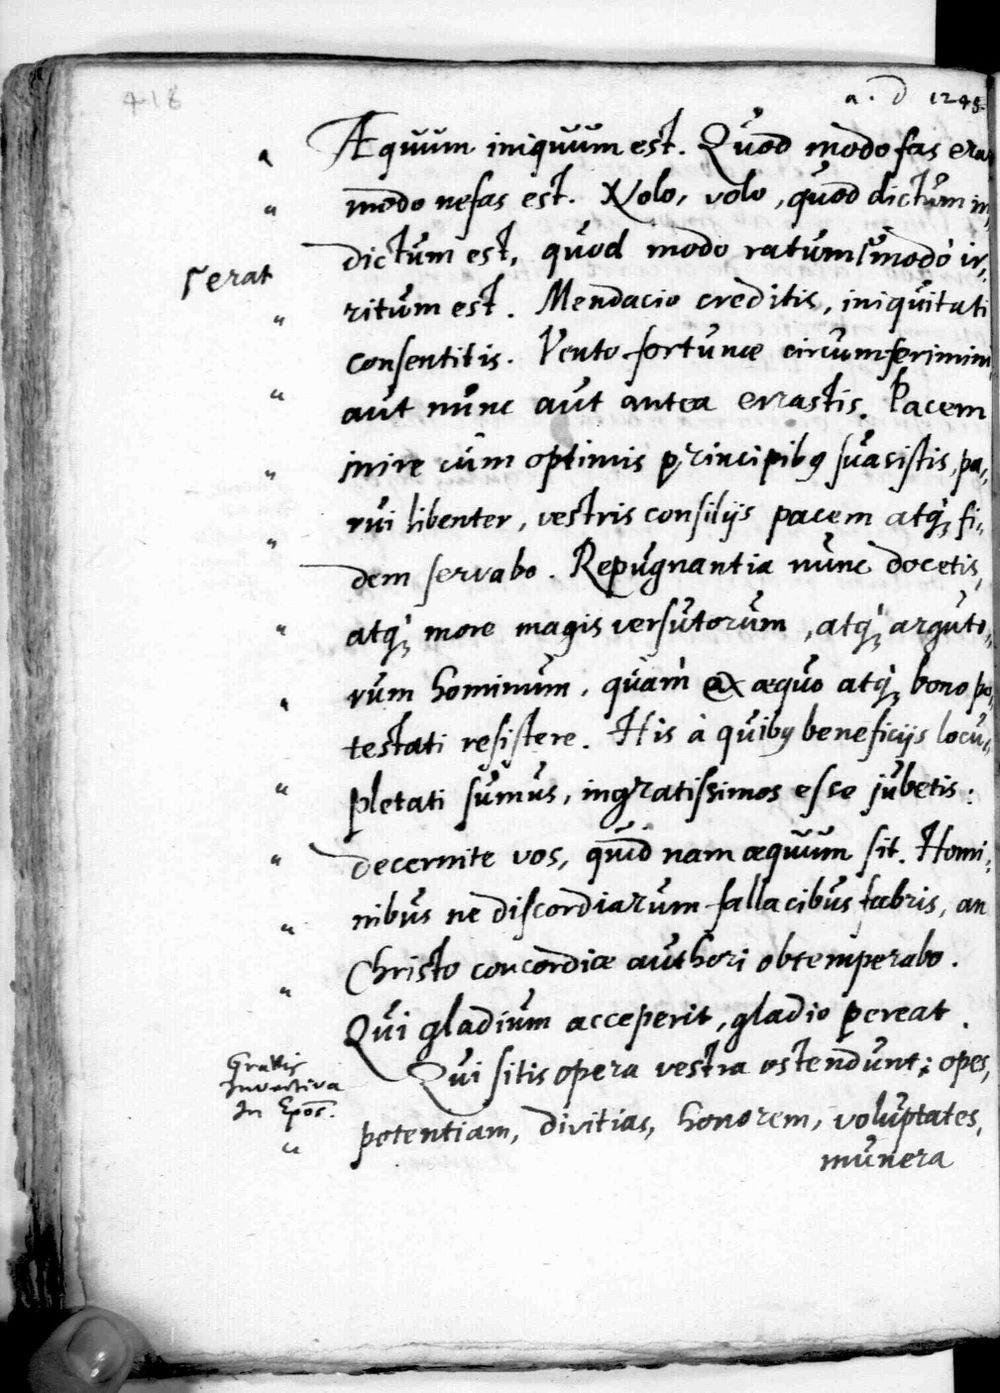 418
a. d 1248.
Æquum iniquum est. Quod modo fas era
modo nefas est. Nolo, volo, quod dictum in,,
dictum est, quod modo ratum⌈modo ir,,
⌈erat
ritum est. Mendacio creditis, iniquitati
consentitis. Vento fortunæ circumferimin
aut nunc aut antea errastis. Pacem
inire cum optimis principibꝰ suasistis, pa,,
rui libenter, vestris consilijs pacem atqꝫ fi,,
dem servabo. Repugnantia nunc docetis,
atqꝫ more magis versutorum, atqꝫ arguto,,
rum hominum, quàm ex æquo atqꝫ bono po
testati resistere. His à quibꝰ beneficijs locu,,
pletati sumus, ingratissimos esse jubetis:
decernite vos, quid nam æquum sit. Homi,,
nibus ne discordiarum fallacibus fabris, an
Christo concordiæ authori obtemperabo.
Qui gladium acceperit, gladio pereat.
Gravis
Invectiva
In Epõs.
Qui sitis opera vestra ostendunt; opes,
potentiam, divitias, honorem, voluptates,
munera